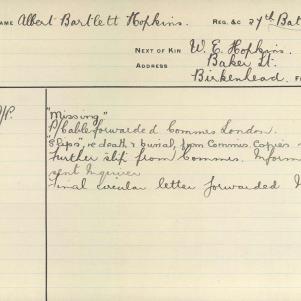 NAME Albert Bartlett Hopkins. REG. &C 27th Bat
NEXT OF KIN W. E. Hopkins.
ADDRESS Baker St.
Birkenhead.
"Missing"
Cable forwarded Commrs London.
Slips, re death & burial, from Commrs. Copies
Further slip from Commrs. Inform
sent Inquirer
Final circular letter forwarded